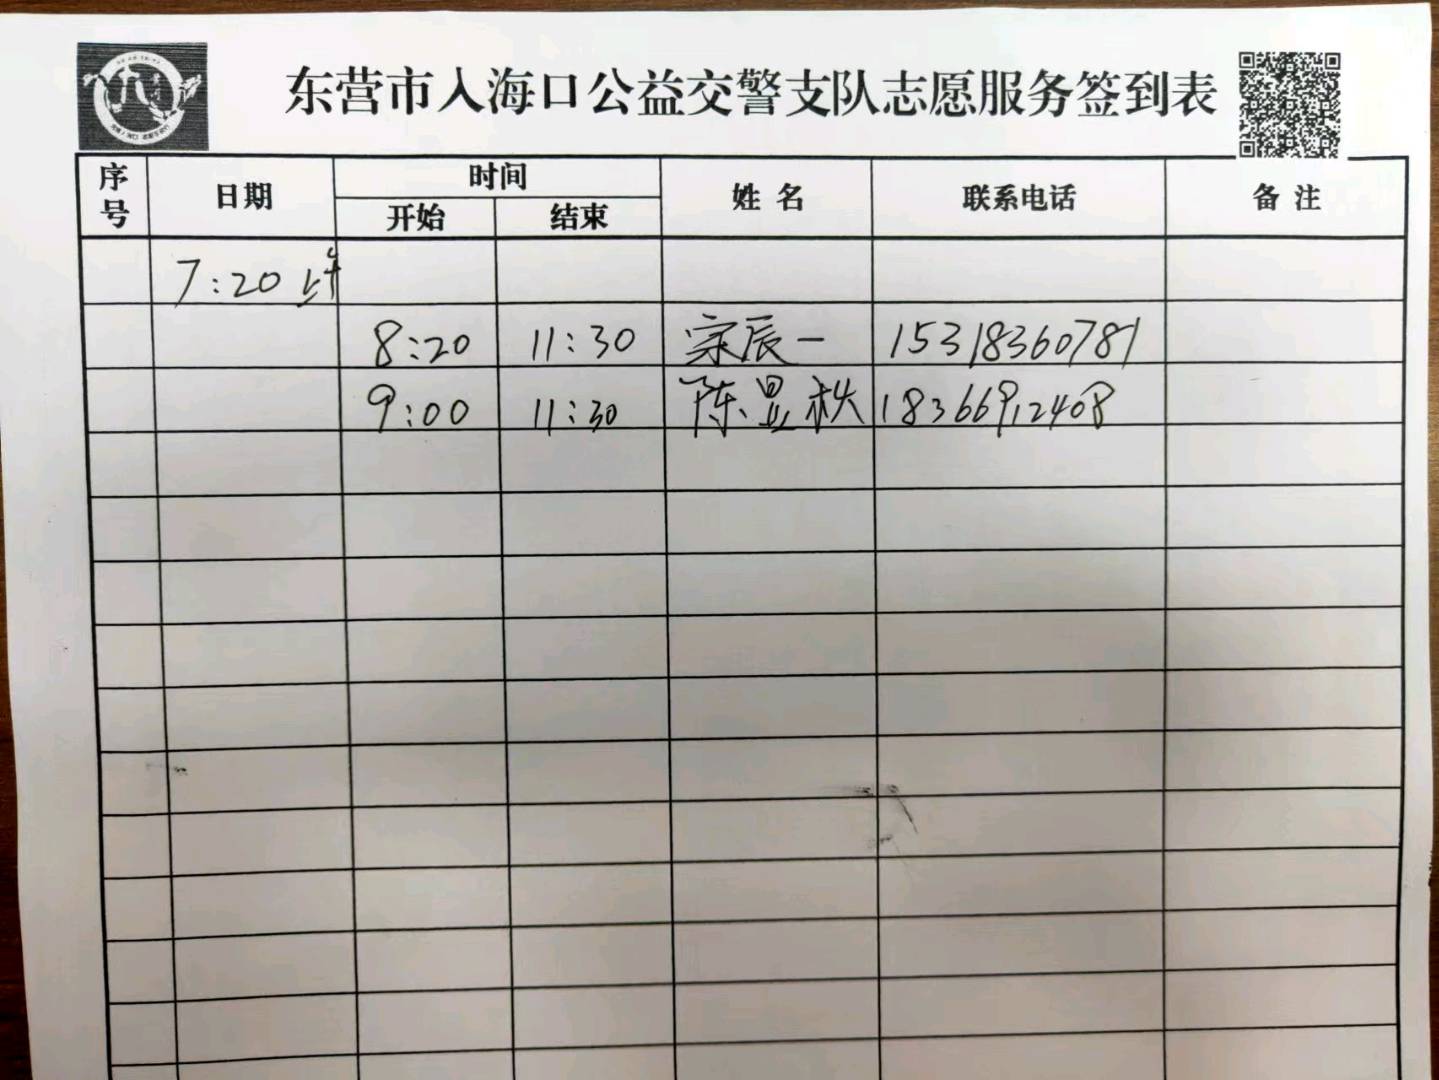 东营市入海口公益交警支队志愿服务签到表
序号 日期 时间 姓名 联系电话 备注
开始 结束
7:20 上午
8:20 11:30 宗辰一 15318360781
9:00 11:30 陈显秋 18366912408